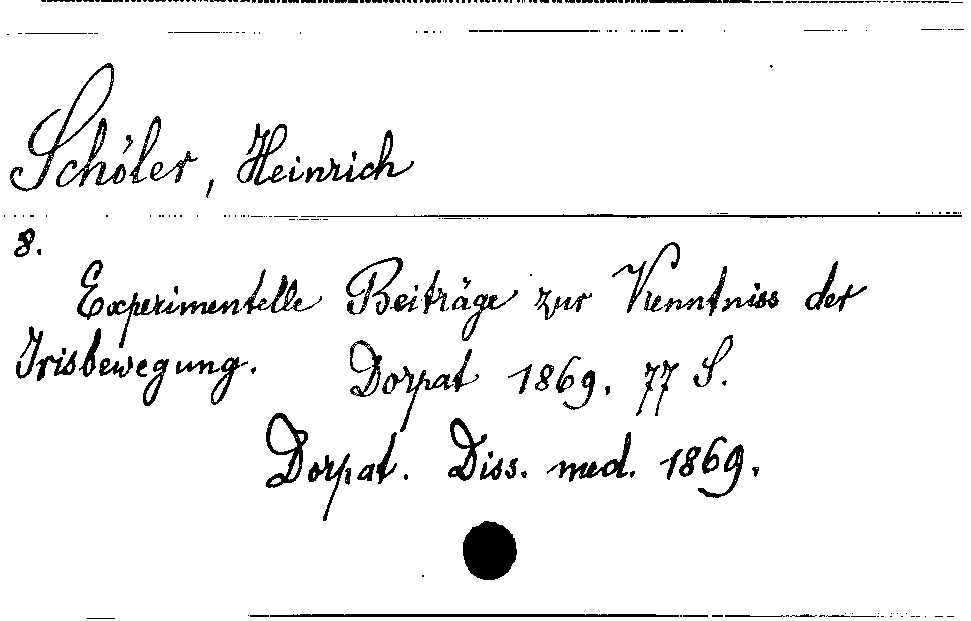 Schöler, Heinrich
8.
Experimentelle Beiträge zur Kenntniss der
Irisbewegung. Dorpat 1869. 77 S.
Dorpat. Diss. med. 1869.